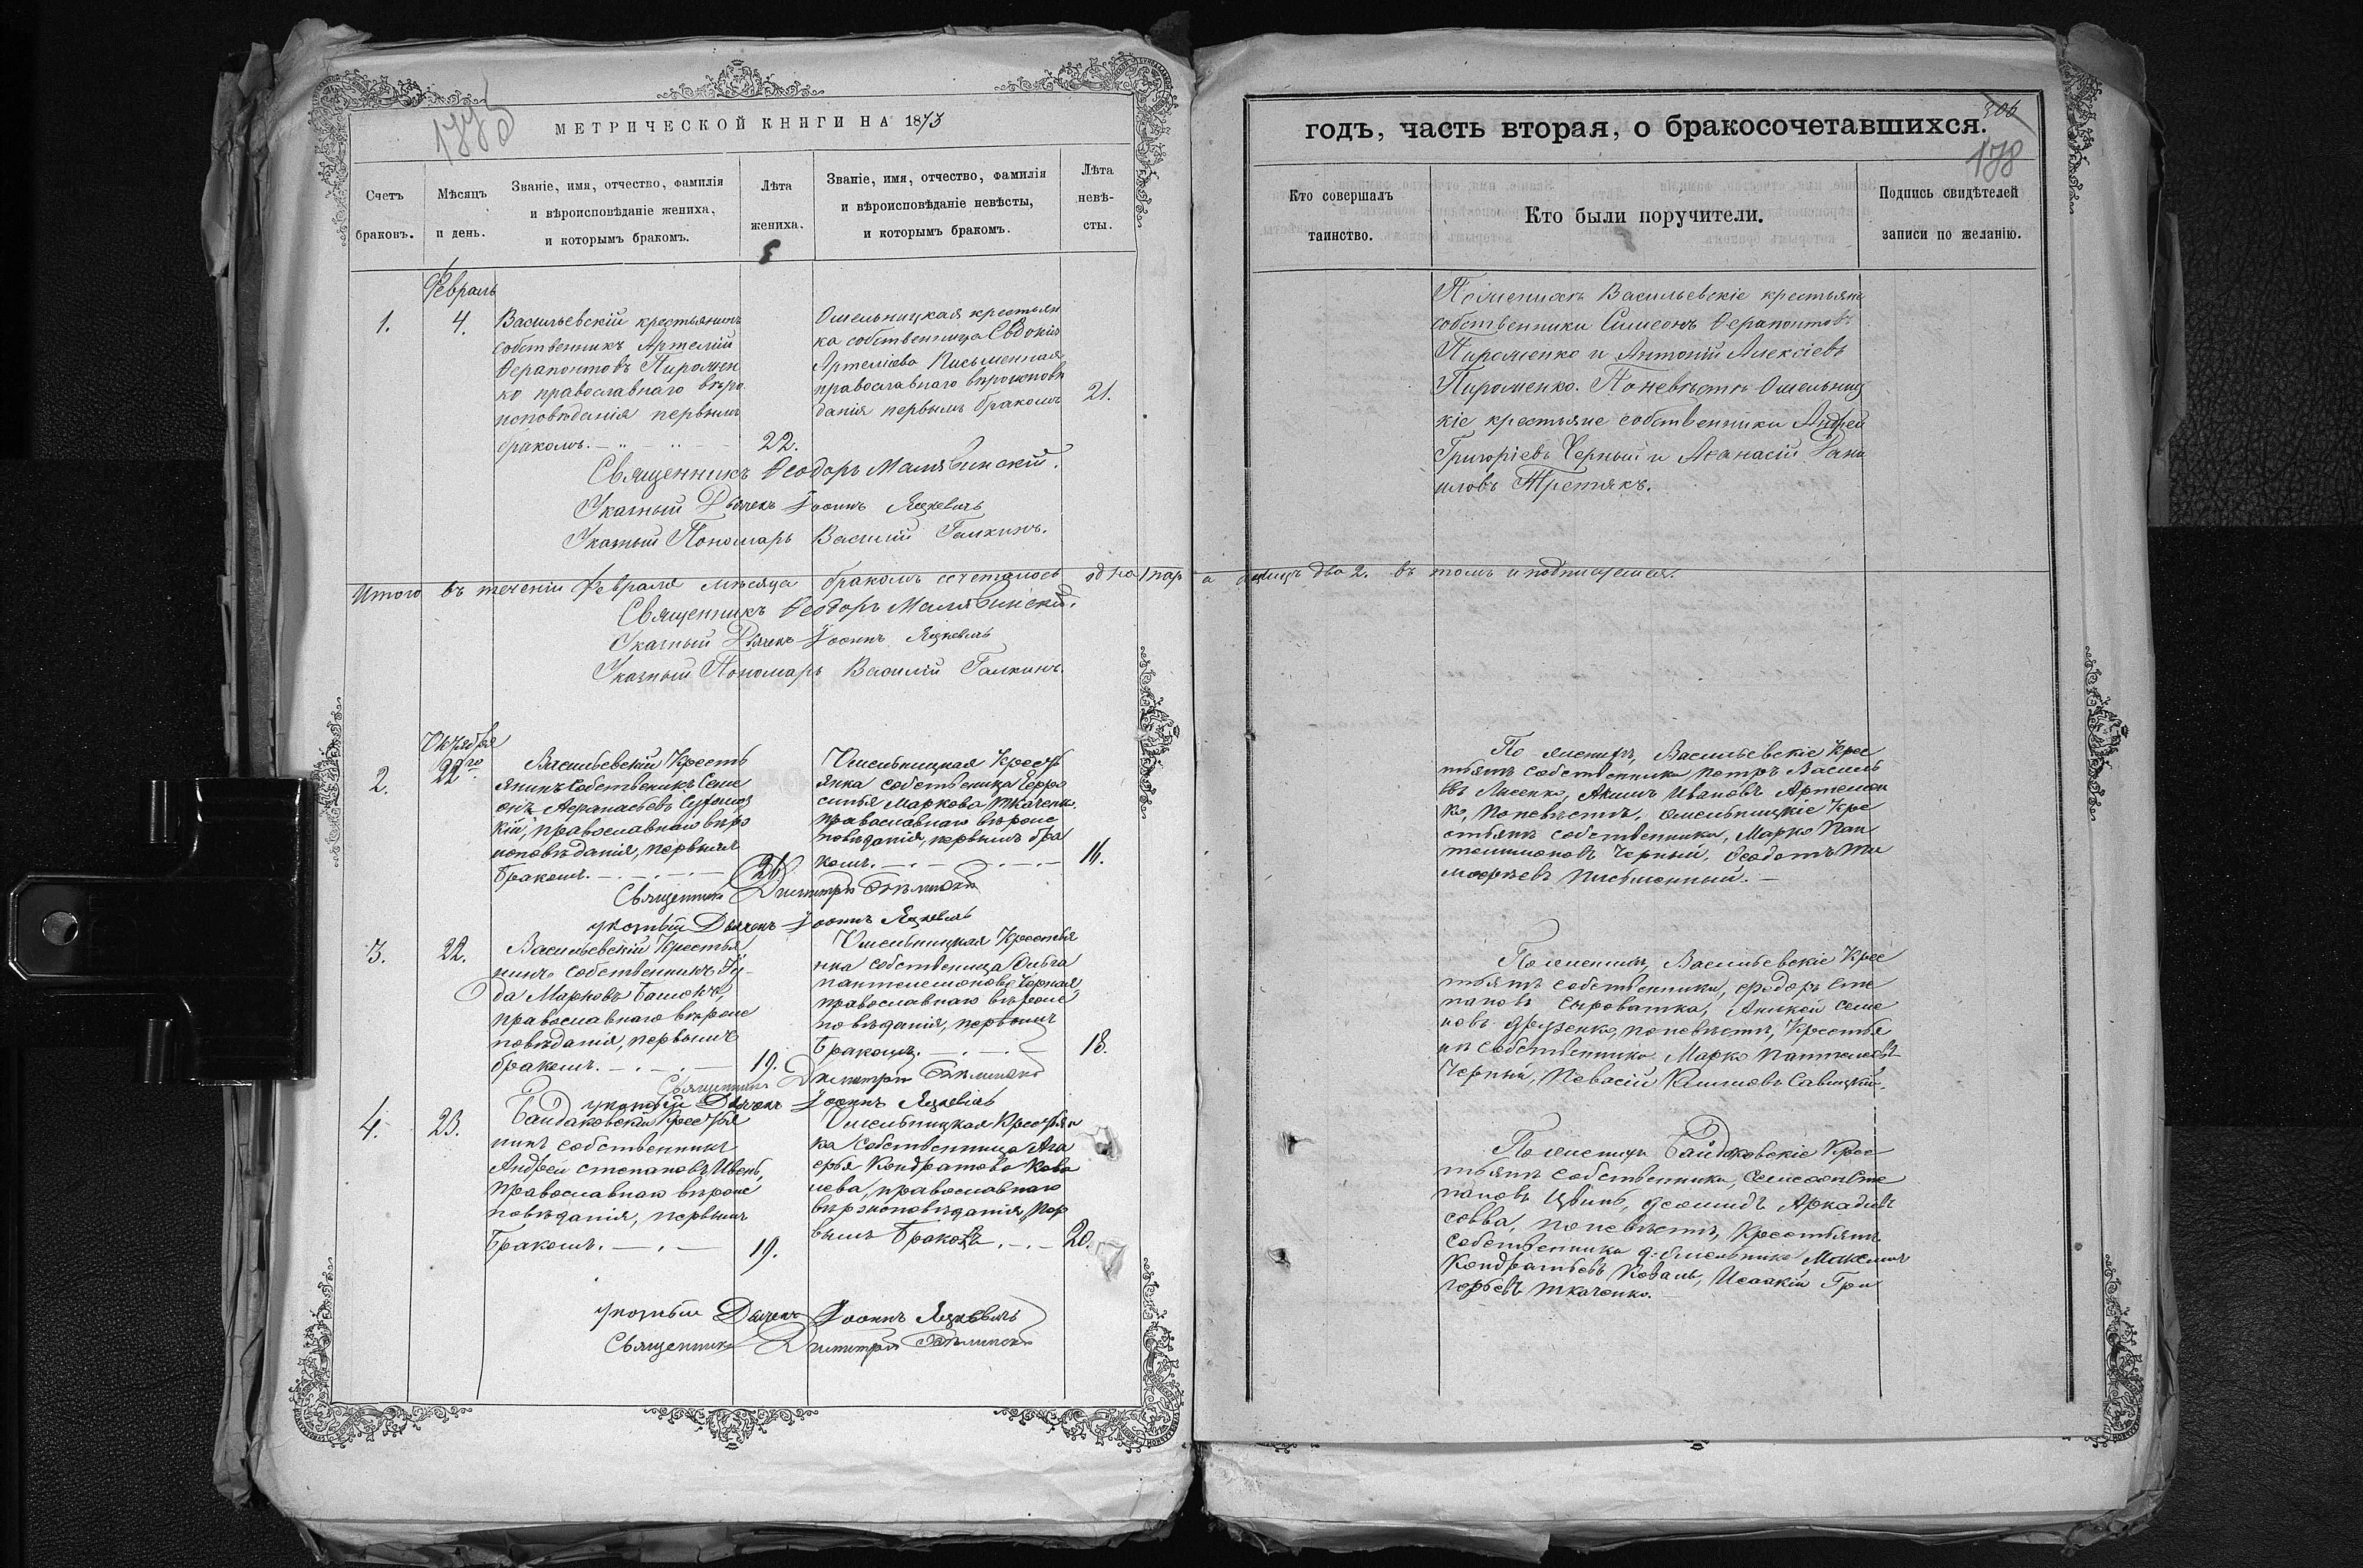 1773
МЕТРИЧЕСКОЙ КНИГИ НА 1873
Счетъ браковъ.
Мѣсяцъ и день.
Званіе, имя, отчество, фамилія
и вѣроисповѣданіе жениха,
и которымъ бракомъ.
Лѣта
жениха.
Званіе, имя, отчество, фамилія
и вѣроисповѣданіе невѣсты,
и которымъ бракомъ.
Лѣта
невѣ-
сты.
Февраль
1.
4.
Васильевскій крестьянинъ
собственникъ Артемій
Ѳерапонтовъ Пиромен
ко православнаго вѣро
исповѣданія первымъ
бракомъ.
22.
Омельницкая крестьян
ка собственница Евдокія
Артеміева Письменная
православнаго вѣроисповѣ
данія первымъ бракомъ
21.
Священникъ Ѳеодоръ Малявинскій.
Указный Дьячекъ Іоаннъ Яцкевичъ
Указный Пономарь Василій Галкинъ.
Итого въ теченіи Февраля мѣсяца бракомъ сочеталось одна 1 пар
Священникъ Ѳеодоръ Малявинскій.
Указный Дьячекъ Іоаннъ Яцкевичъ
Указный Пономарь Василій Галкинъ.
Октября
2.
22го
Васильевскій Кресть
янинъ Собственикъ Семе
онъ Аѳанасьевъ
кій, православнаго вѣро
исповѣданія, первымъ
бракомъ.
Омельницкая Кресть
янка собственица
синья Маркова Ткаченк.
православнаго вѣроис
повѣданія, первымъ бра
комъ.
16.
Священникъ Димитрій
указный Дьячекъ Іоаннъ Яцкевичъ
3.
22.
Васильевскій Крестья
нинъ собственникъ Гу-
да Марковъ
православнаго вѣроис
повѣданія, первымъ
бракомъ.
19.
Омельницкая Крестья
нка собственница Ольга
пантелемонова Чорная,
православнаго вѣроис
повѣданія, первымъ
бракомъ.
18.
Священникъ Димитрій
указный Дьячекъ Іоаннъ Яцкевичъ
4.
23.
Байдаковскій Крестья
нинъ собственникъ
Андрей степановъ
православнаго вѣроис
повѣданія, первымъ
бракомъ.
19.
Омельницкая Крестьян
ка собственница Ага
ѳья Кондратова Кова
лева, православнаго
вѣроисповѣданія, пер
вымъ бракомъ
20.
указный Дьячекъ Іоаннъ Яцкевичъ
Священникъ Димитрій
306
178
годъ, часть вторая, о бракосочетавшихся.
Кто совершалъ
таинство.
Кто были поручители.
Подпись свидѣтелей
записи по желанію.
По женихѣ Васильевскіе крестьяне
собственники Симеонъ Ѳерапонтовъ
Пироменко и Антоній Алексіевъ
Пироменко. По невѣстѣ Омельниц
кіе крестьяне собственники Андрей
Григоріевъ Черный и Аѳанасій Дани
иловъ Третякъ.
а лицъ два 2. въ томъ и подписуемся.
По женихѣ, Васильевскіе Крес
тьяне собственники Петръ Василь
евъ Лисенко, Акимъ Ивановъ Артемен
ко, по невѣстѣ, омельницкіе Кре
стьяне собственники, Марко Пан
телимоновъ Черный, Ѳеодотъ Ти
моѳеевъ Письменный.
По женихѣ, Васильевскіе Крес
тьяне собственники, ѳедоръ Сте
пановъ Сыроватка, Алексѣй Семе
новъ по невѣстѣ, Крестья
не собственники Марко Пантелеевъ
Черный, Савицкій.
По женихѣ Байдаковскіе Крес
тьяне собственники, Семеонъ Сте
пановъ Аркадіевъ
Савва, по невѣстѣ, Крестьяне
собственники д. Омельника Максимъ
Кондратьевъ Коваль, Исаакій Гри
горьевъ Ткаченко.